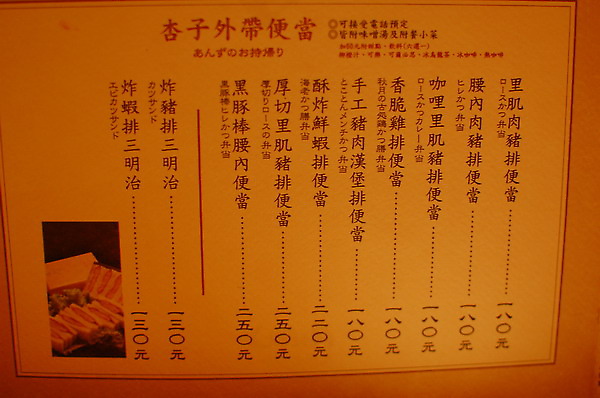 杏子外帶便當
あんずのお持帰り
◎可接受電話預定
◎皆附味噌湯及附餐小菜
里肌肉豬排便當……一八〇元
ロースかつ弁当
腰內肉豬排便當……一八〇元
ヒレかつ弁当
咖哩里肌豬排便當……一八〇元
ロースかつカレー弁当
香脆雞排便當……一八〇元
手工豬肉漢堡排便當……一八〇元
とことんメンチかつ弁当
酥炸鮮蝦排便當……二二〇元
海老かつ膳弁当
厚切里肌豬排便當……二五〇元
厚切りロースの弁当
黑豚棒腰內便當……二五〇元
黒豚棒ヒレかつ弁当
炸豬排三明治……一三〇元
カツサンド
炸蝦排三明治……一三〇元
エビカツサンド